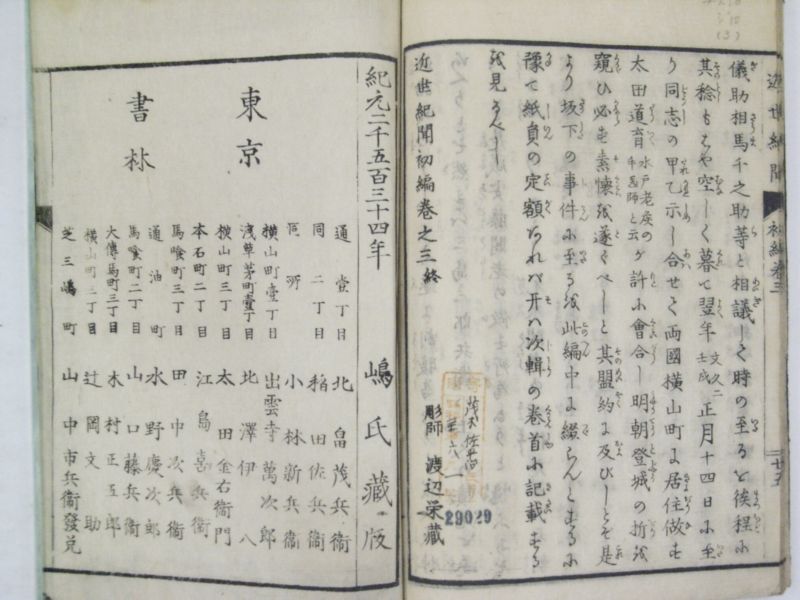 儀助相馬千之助等と相議して時の至ると俟程に
其稔もはや空しく暮て翌年文久二壬戌正月十四日に至
り同志の甲乙示し合せて両國横山町に居住做す
太田道育水戸老侯の千医師と云が許に會合し明朝登城の折を
窺ひ必ず素懐を遂べしと其盟約に及びしとぞ是
より坂下の事件に至るを此編中に綴らんとするに
豫て紙員の定額あれバ开ハ次輯の巻首に記載する
を見るべし
近世紀聞初編巻之三終
彫師 渡辺栄藏
29029
近世紀聞 初編巻三 廿五
紀元二千五百三十四年 嶋氏藏版
東京
書林
通壹丁目 北畠茂兵衞
同二丁目 稲田佐兵衞
同所 小林新兵衞
横山町壹丁目 出雲寺萬次郎
淺草茅町壹丁目 北澤伊八
横山町三丁目 太田金右衞門
本石町二丁目 江島喜兵衞
馬喰町三丁目 田中次兵衞
通油町 水野慶次郎
馬喰町二丁目 山口藤兵衞
大傳馬町三丁目 木村正五郎
横山町二丁目 辻岡文助
芝三嶋町 山中市兵衞發兌